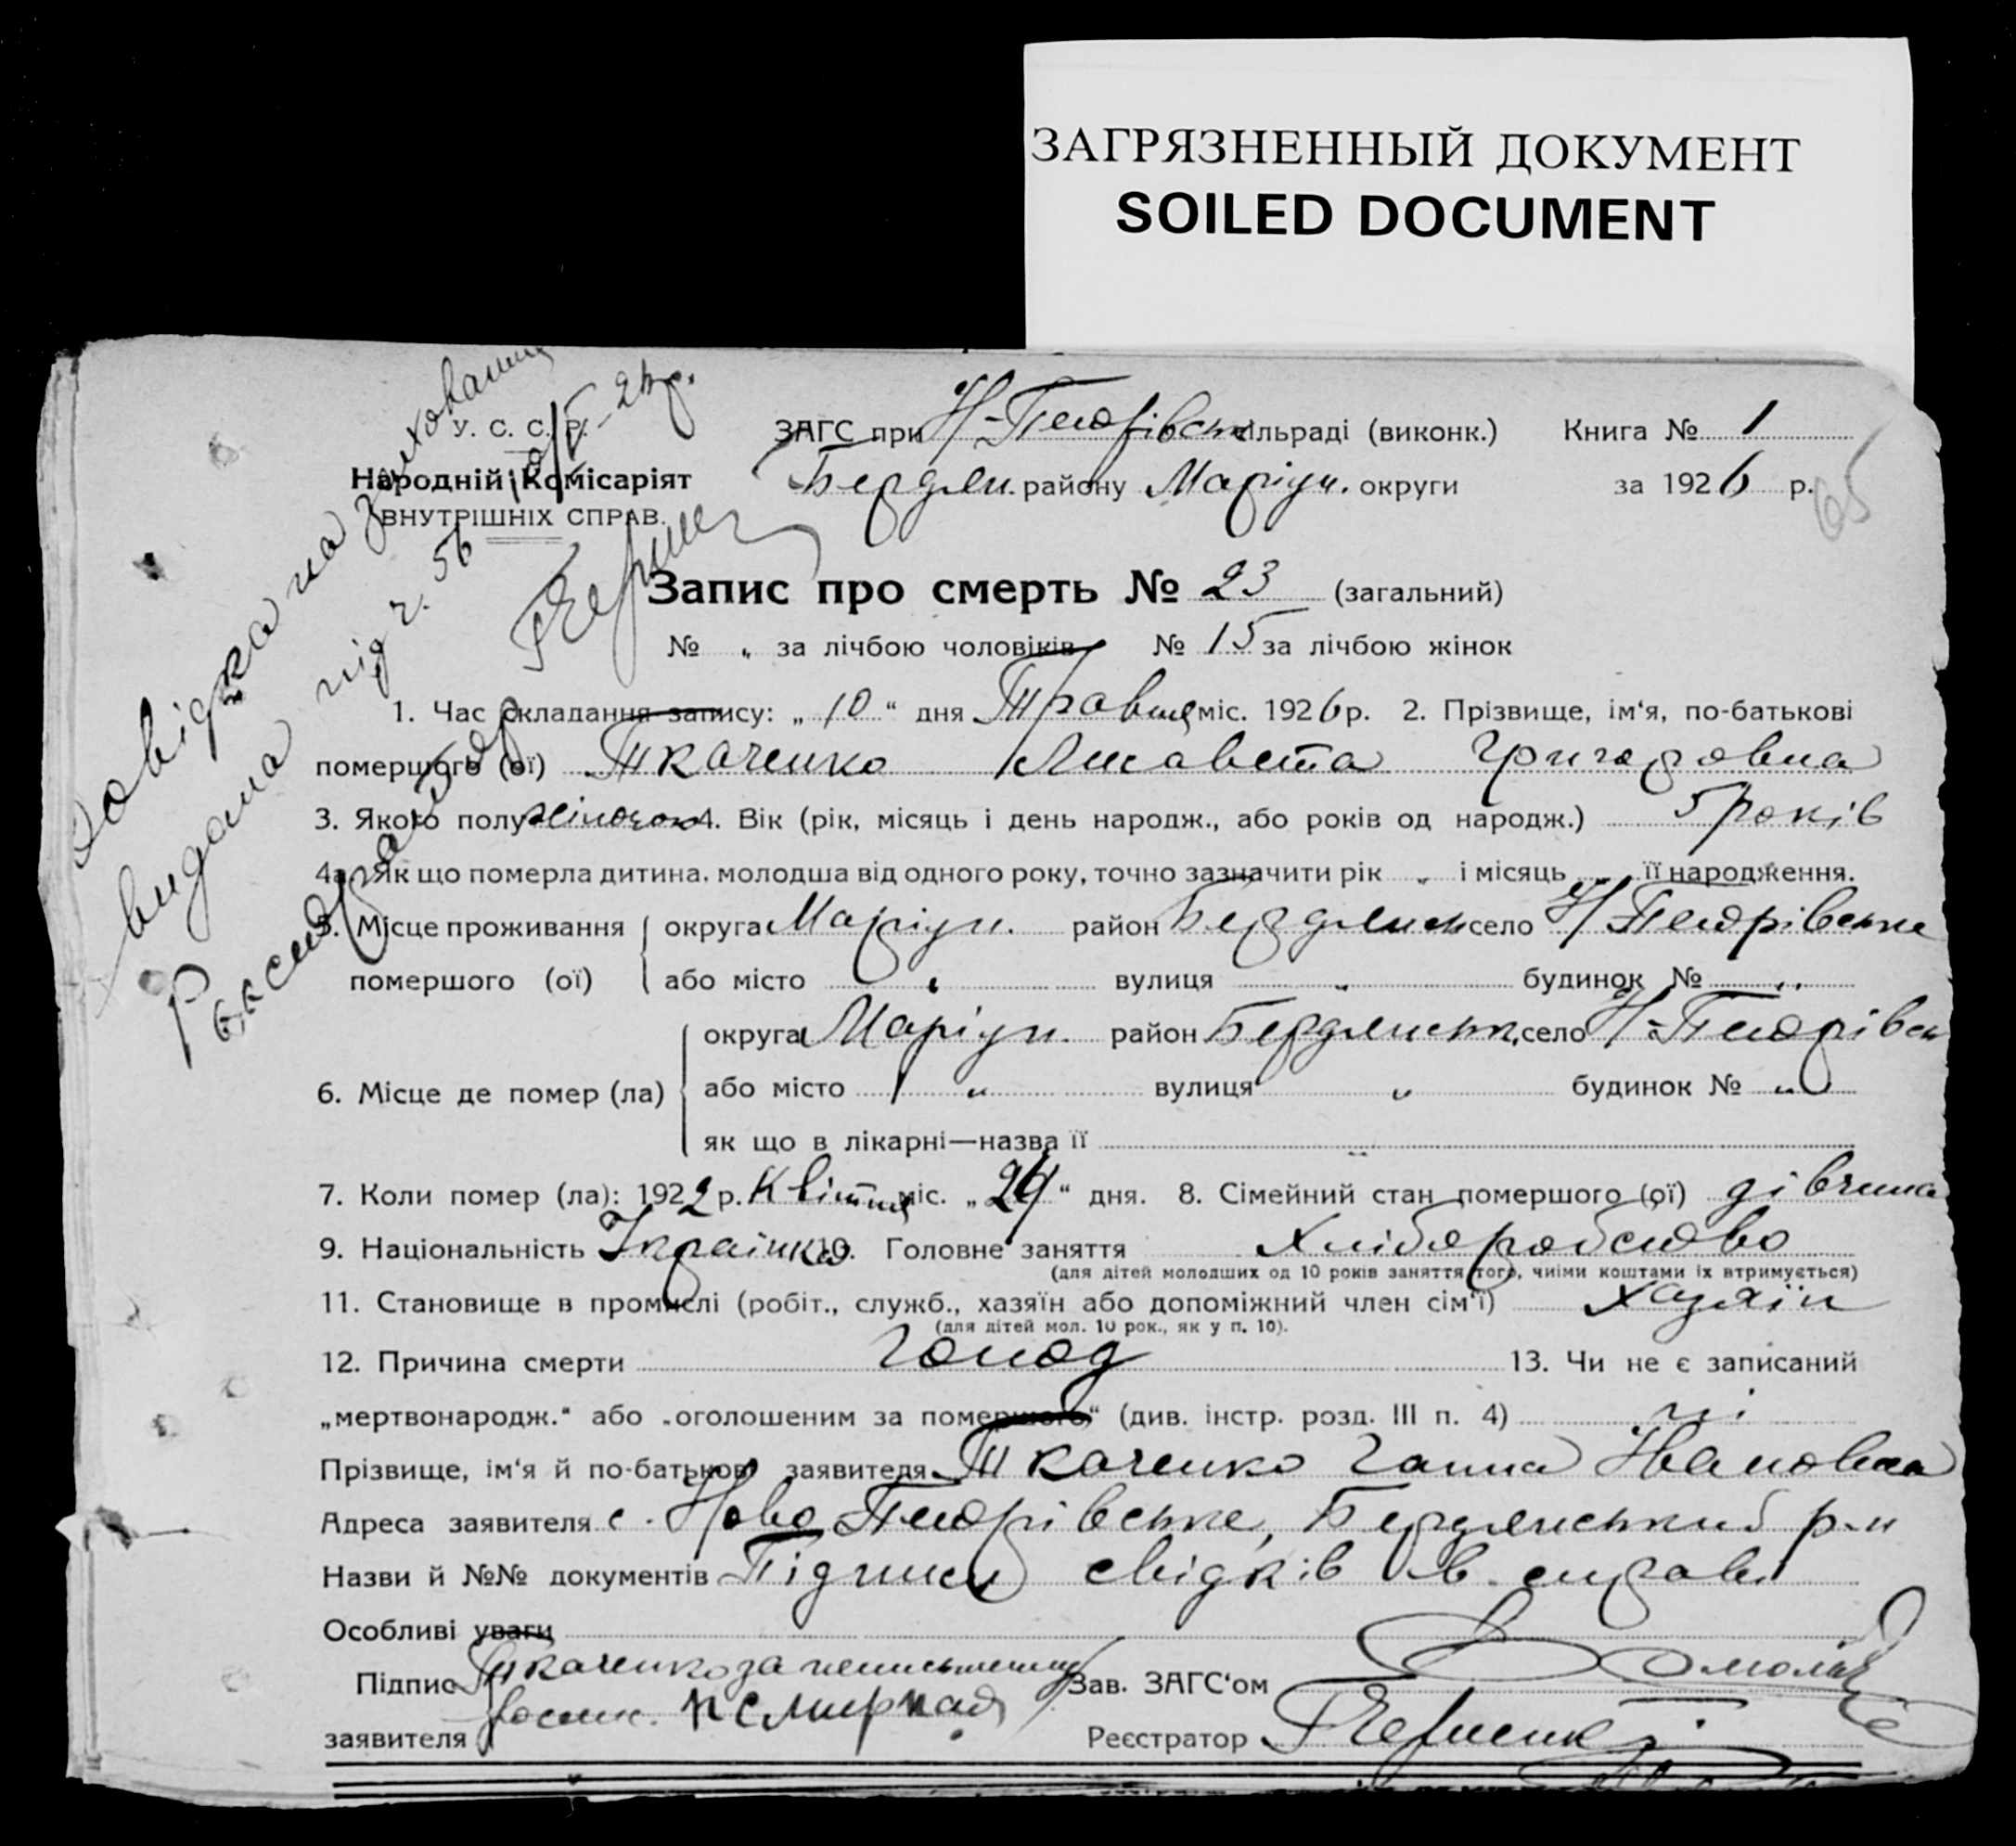 ЗАГРЯЗНЕННЫЙ ДОКУМЕНТ
SOILED DOCUMENT
У. С. С. Р.
Народній Комісаріят
ВНУТРІШНІХ СПРАВ.
ЗАГС при Н-Петрівськ сільраді (виконк.) Книга № 1
Бердян. району Маріуп. округи за 1926 р.
65
Довідка на
видана під ч. 56
Реєстратор
Запис про смерть № 23 (загальний)
№ „ за лічбою чоловіків № 15 за лічбою жінок
1. Час складання запису: „10“ дня Травня міс. 1926 р. 2. Прізвище, ім‘я, по-батькові
помершого (ої) Ткаченко Лисавета Григоровна
3. Якого полу жіночого 4. Вік (рік, місяць і день народж., або років од народж.) 5 років
4а. Як що померла дитина. молодша від одного року, точно зазначити рік „ і місяць „ її народження.
5. Місце проживання округа Маріуп. район Бердянськ село Н Петрівське
помершого (ої) або місто „ вулиця „ будинок № „
6. Місце де помер (ла) округа Маріуп. район Бердянськ. село Н-Петрівськ
або місто „ вулиця „ будинок № „
як що в лікарні—назва її
7. Коли помер (ла): 1922 р. Квітня міс. „ “ дня. 8. Сімейний стан помершого (ої) дівчина
9. Національність Українка 10. Головне заняття Хліборобство
(для дітей молодших од 10 років заняття того, чиїми коштами їх втримується)
11. Становище в промислі (робіт., служб., хазяїн або допоміжний член сім‘ї) хазяїн
(для дітей мол. 10 рок., як у п. 10).
12. Причина смерти голод 13. Чи не є записаний
„мертвонародж.“ або „оголошеним за помершого“ (див. інстр. розд. III п. 4) ні
Прізвище, ім‘я й по-батькові заявителя Ткаченко Ганна Ивановна
Адреса заявителя с. Ново Петрівське, Бердянський р-н
Назви й №№ документів Підписи свідків в справі
Особливі уваги
Підпис Ткаченко за неписьменну Зав. ЗАГС‘ом
заявителя Реєстратор